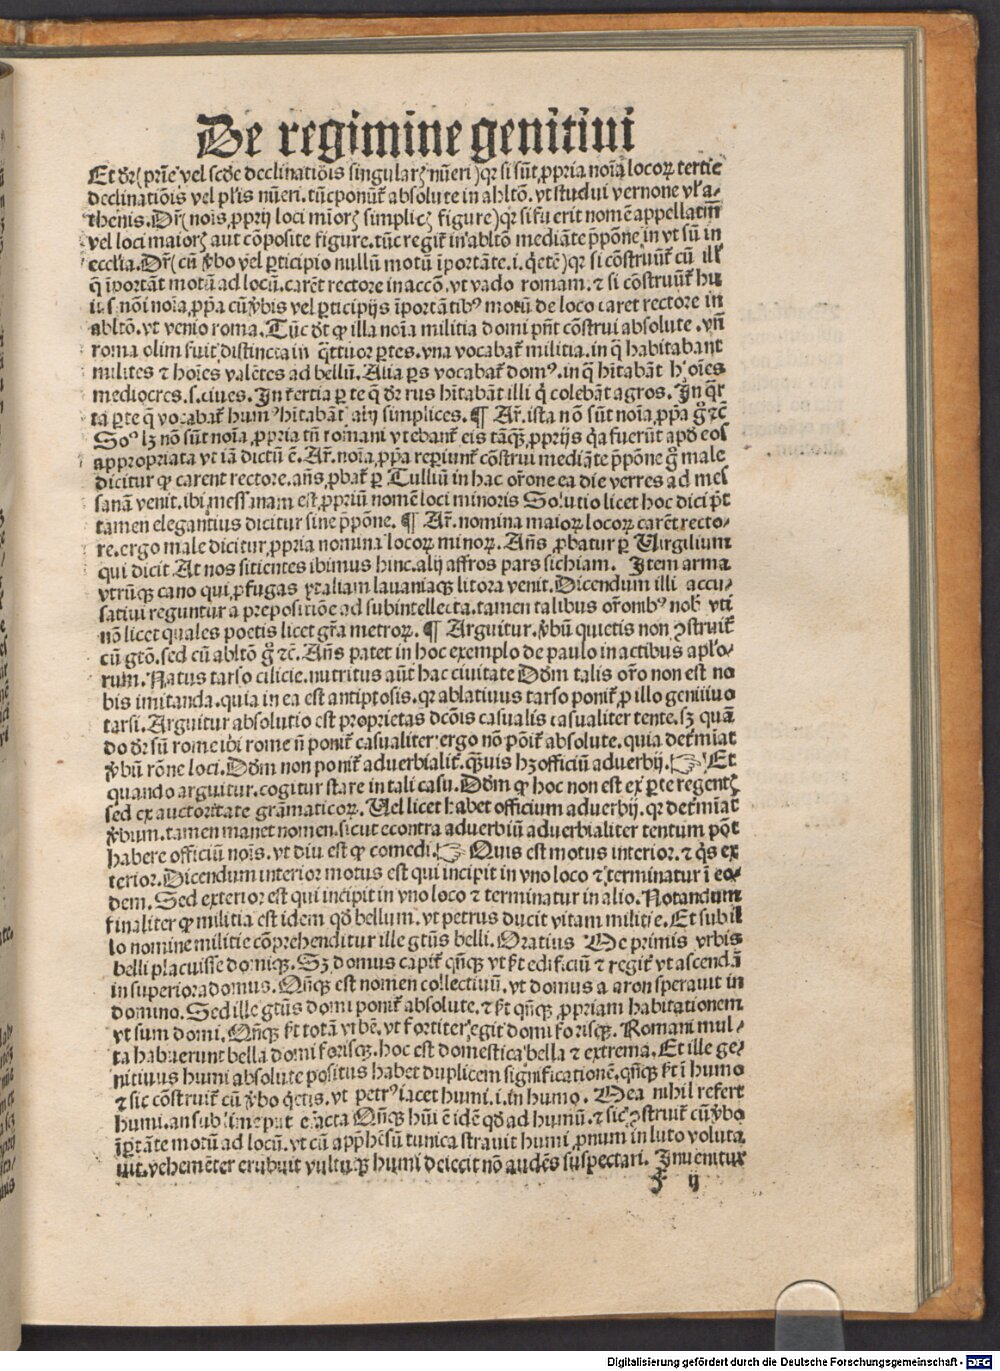 De regimine genitiui
Et dr̄ (prīe vel scd̄e declinatiōis singularꝫ nūeri) qr si sūt ꝓpria noīa locoꝝ tertie
declinatiōis vel pl̄is nūeri. tūc ponūt̄ absolute in ablt̄o. vt studui vernone vl̓ a⸗
thenis. Dr̄ (noīs ꝓprij loci mīorꝫ simplicꝫ figure) qr si fuerit nomē appellatiuū
vel loci maiorꝫ aut cōposite figure. tūc regit̄ in ablt̄o mediāte p̄pōne in vt sū in
ecclia. Dr̄ (cū v̓bo vel ꝑticipio nullū motū īportāte. i. q̄etē) qr si cōstruūt̄ cū ill̓
q̄ īportāt motū ad locū. carēt rectore in accō. vt vado romam. ⁊ si cōstruūt̄ hu
nōi noīa ꝓpa cū v̓bis vel ꝑticipijs īportātibꝰ motū de loco caret rectore in
ablt̄o. vt venio roma. Tūc dt̄ ꝙ illa noīa militia domi pn̄t cōstrui absolute. vn̄
roma olim fuit distincta in q̄ttuor ꝑtes. vna vocabat̄ militia. in q̄ habitabant
milites ⁊ hoīes valētes ad bellū. Alia ꝑs vocabat̄ domꝰ. in q̄ hītabāt hoīes
mediocres. s. ciues. In tertia ꝑte q̄ dr̄ rus hītabāt illi q̄ colebāt agros. In q̄r
ta ꝑte q̄ vocabat̄ humꝰ hītabāt alij simplices. ¶ Ar̄. ista nō sūt noīa ꝓpa g̊ ⁊c̄
Soꝰ lꝫ nō sūt noīa ꝓpria tn̄ romani vtebant̄ eis tāꝙ ꝓprijs q̓a fuerūt apd̓ eos
appropriata vt iā dictū ē. Ar̄. noīa ꝓpa reꝑiunt̄ cōstrui mediāte p̄pōne g̊ male
dicitur ꝙ carent rectore. añs ꝓbat̄ ꝑ Tulliū in hac or̄one ea die verres ad mes
sanā venit. ibi messanam est ꝓpriū nomē loci minoris Solutio licet hoc dici pt̄
tamen elegantius dicitur sine p̄pōne. ¶ Ar̄. nomina maioꝝ locoꝝ carēt recto⸗
re. ergo male dicitur ꝓpria nomina locoꝝ minoꝝ. Añs ꝓbatur ꝑ Virgilium
qui dicit At nos sitientes ibimus hinc. alij affros pars sichiam. Item arma
vtrūqꝫ cano qui ꝓfugas ytaliam lauaniaqꝫ litora venit. Dicendum illi accu⸗
satiui reguntur a prepositiōe ad subintellecta. tamen talibus or̄ombꝰ nob̓ vti
nō licet quales poetis licet gr̄a metroꝝ. ¶ Arguitur. v̓bū quietis non ꝯstruit̄
cū gtō. sed cū ablt̄o g̊ ⁊c̄. Añs patet in hoc exemplo de paulo in actibus apl̓o⸗
rum. Natus tarso cilicie. nutritus aūt hac ciuitate Dd̄m talis or̄o non est no
bis imitanda. quia in ea est antiptosis. qr ablatiuus tarso ponit̄ ꝓ illo genitiuo
tarsi. Arguitur absolutio est proprietas dcōis casualis casualiter tente. sꝫ quā
do dr̄ sū rome ibi rome n̄ ponit̄ casualiter ergo nō pōit̄ absolute. quia det̄mīat
v̓bū rōne loci. Dd̄m non ponit̄ aduerbialit̓. ꝙuis hꝫ officiū aduerbij. ☞ Et
quando arguitur. cogitur stare in tali casu. Dd̄m ꝙ hoc non est ex ꝑte regentꝫ
sed ex auctoritate grāmaticoꝝ. Vel licet habet officium aduerbij. qr det̄mīat
v̓bum. tamen manet nomen. sicut econtra aduerbiū aduerbialiter tentum pōt
habere officiū noīs. vt diu est ꝙ comedi. ☞ Quis est motus interior. ⁊ q̓s ex
terior. Dicendum interior motus est qui incipit in vno loco ⁊ terminatur ī eo⸗
dem. Sed exterior est qui incipit in vno loco ⁊ terminatur in alio. Notandum
finaliter ꝙ militia est idem qd̓ bellum. vt petrus ducit vitam militie. Et sub il
lo nomine militie cōprehenditur ille gtūs belli. Oratius Me primis vrbis
belli placuisse domiqꝫ. Sꝫ domus capit̄ qn̄qꝫ vt ē edificiū ⁊ regit̄ vt ascendā
in superiora domus. Qn̄qꝫ est nomen collectiuū. vt domus aaron sperauit in
domino. Sed ille gtūs domi ponit̄ absolute. ⁊ ē qn̄qꝫ ꝓpriam habitationem
vt sum domi. Qn̄qꝫ ē totā vrbē. vt fortiter egit domi forisqꝫ. Romani mul⸗
ta habuerunt bella domi forisqꝫ. hoc est domestica bella ⁊ extrema. Et ille ge⸗
nitiuus humi absolute positus habet duplicem significationē. qn̄qꝫ ē ī humo
⁊ sic cōstruit̄ cū v̓bo q̓etis. vt petrꝰ iacet humi. i. in humo. Mea nihil refert
humi. an sublime put Qn̄qꝫ hūi ē idē qd̓ ad humū. ⁊ sic ꝯstruit̄ cū v̓bo
īportāte motū ad locū. vt cū app̄hēsū tunica strauit humi ꝓnum in luto voluta
uit. vehemēter erubuit vultuqꝫ humi deiecit nō audēs suspectari. Inuenitur
ij
Digitalisierung gefördert durch die Deutsche Forschungsgemeinschaft - DFG